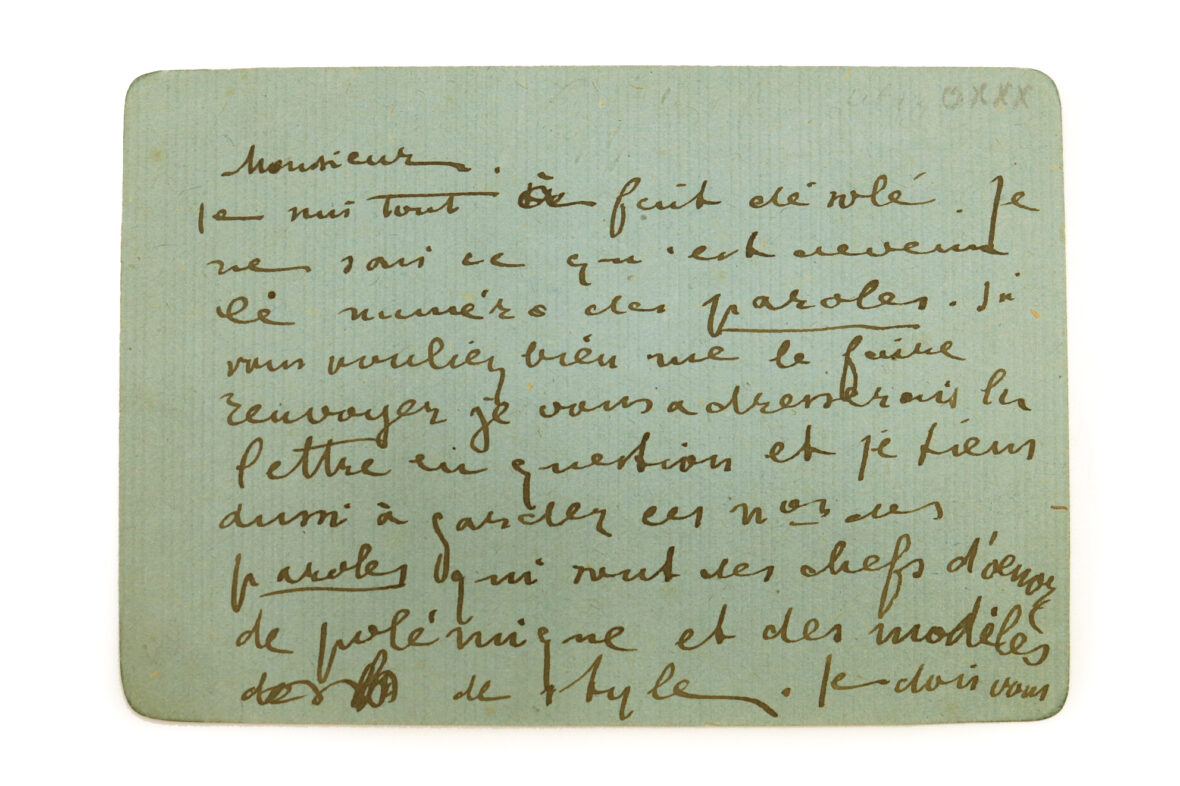 OXXX
Monsieur.
Je suis tout à fait désolé. Je
ne sais ce qu'est devenu
le numéro des paroles. Si
vous vouliez bien me le faire
renvoyer je vous adresserais la
lettre en question et je tiens
aussi à garder ces nos des
paroles qui sont des chefs d'œuvre
de polémique et des modèles
de style. Je dois vous